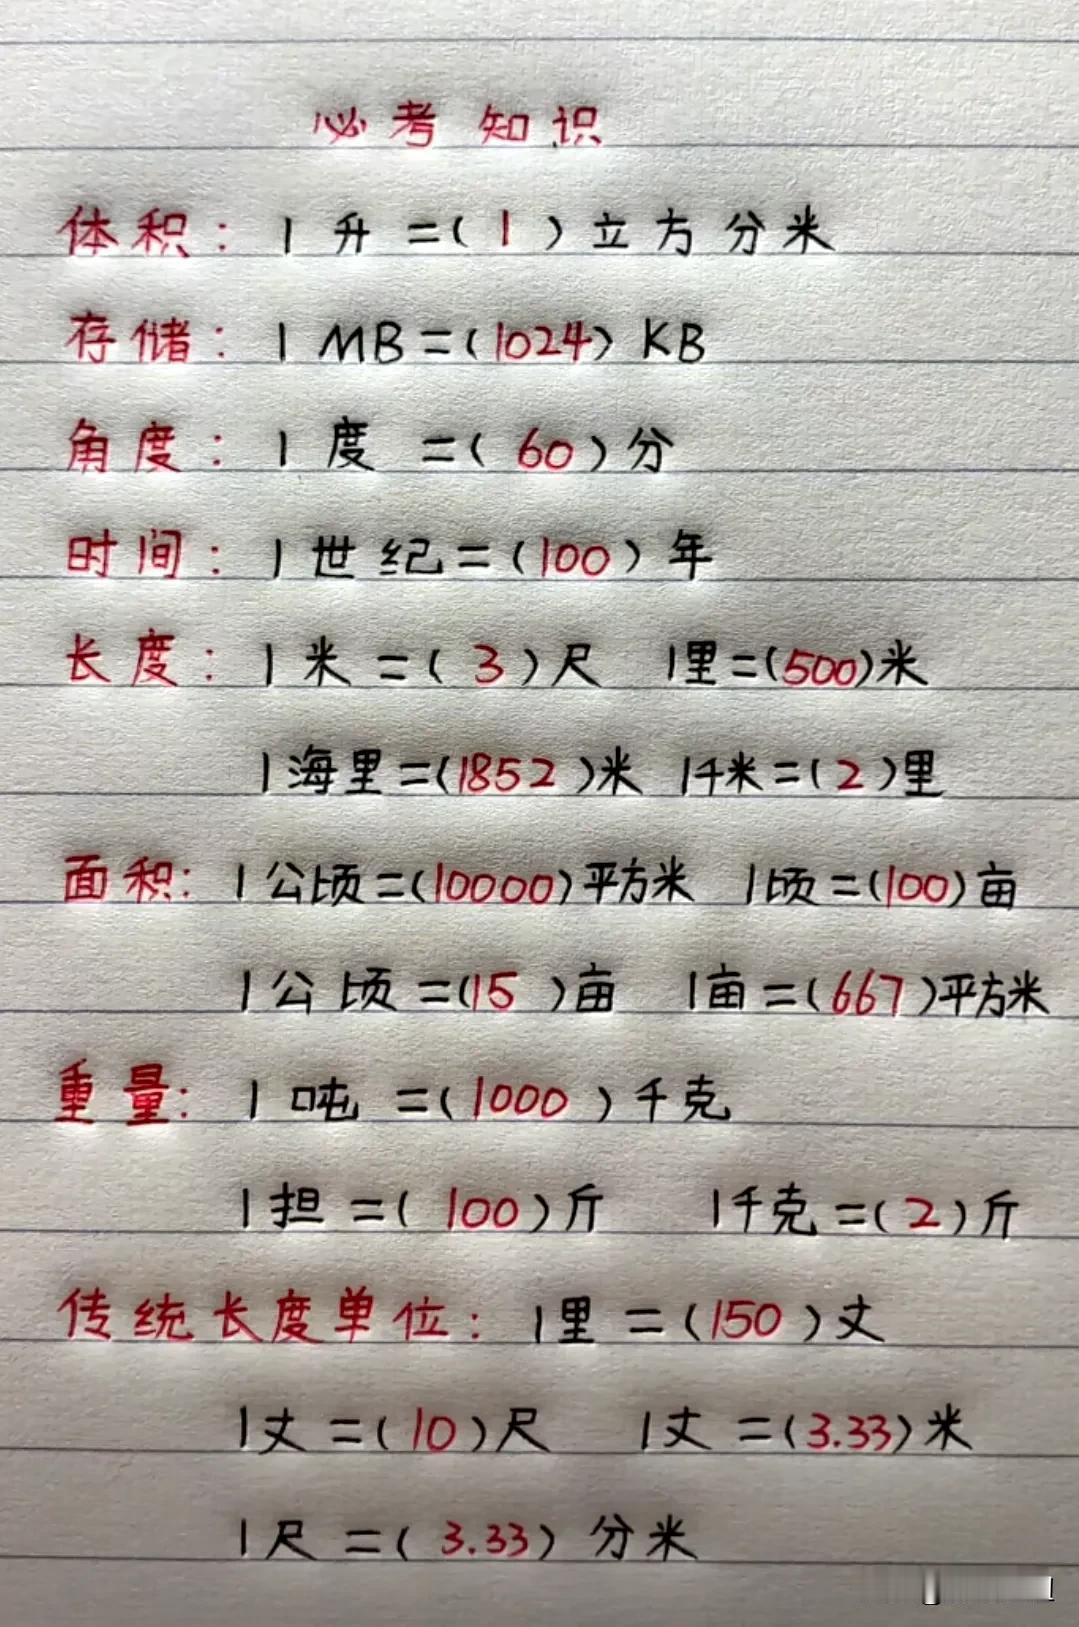 必考知识
体积：1升=(1)立方分米
存储：1MB=(1024)KB
角度：1度=(60)分
时间：1世纪=(100)年
长度：1米=(3)尺 1里=(500)米
1海里=(1852)米 1千米=(2)里
面积：1公顷=(10000)平方米 1顷=(100)亩
1公顷=(15)亩 1亩=(667)平方米
重量：1吨=(1000)千克
1担=(100)斤 1千克=(2)斤
传统长度单位：1里=(150)丈
1丈=(10)尺 1丈=(3.33)米
1尺=(3.33)分米